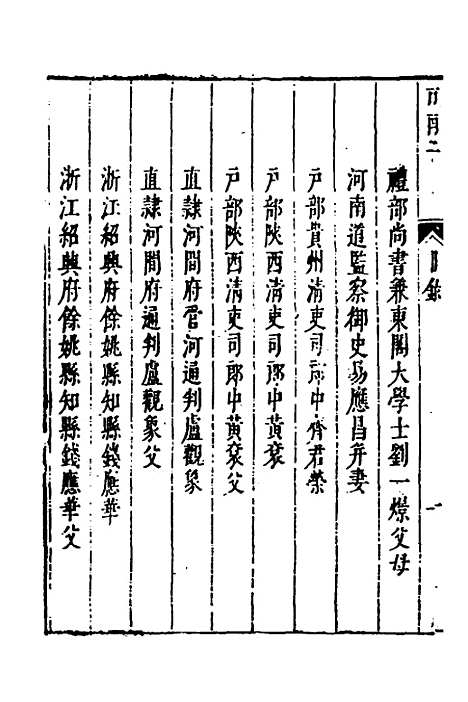 目錄
禮部尚書兼東閣大學士劉一燝父母
河南道監察御史易應昌并妻
戶部貴州清吏司郎中齊君榮
戶部陝西清吏司郎中黃袞
戶部陝西清吏司郎中黃袞父
直隸河間府管河通判盧觀象
直隸河間府通判盧觀象父
浙江紹興府餘姚縣知縣錢應華
浙江紹興府餘姚縣知縣錢應華父